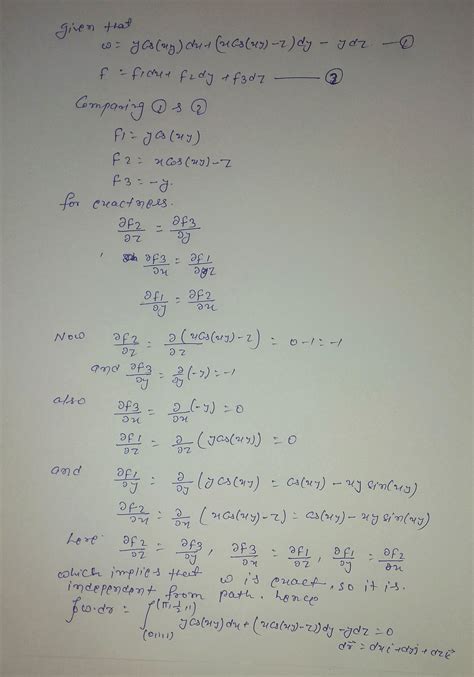 given that
ω = y cos(xy) dx + (x cos(xy) - z) dy - y dz — ①
f = f1 dx + f2 dy + f3 dz — ②
Comparing ① & ②
f1 = y cos(xy)
f2 = x cos(xy) - z
f3 = -y.
for exactness.
∂f2/∂z = ∂f3/∂y
∂f3/∂x = ∂f1/∂z
∂f1/∂y = ∂f2/∂x
Now ∂f2/∂z = ∂(x cos(xy) - z)/∂z = 0 - 1 = -1
and ∂f3/∂y = ∂/∂y (-y) = -1
also ∂f3/∂x = ∂/∂x (-y) = 0
∂f1/∂z = ∂/∂z (y cos(xy)) = 0
and ∂f1/∂y = ∂/∂y (y cos(xy)) = cos(xy) - xy sin(xy)
∂f2/∂x = ∂/∂x (x cos(xy) - z) = cos(xy) - xy sin(xy)
here ∂f2/∂z = ∂f3/∂y, ∂f3/∂x = ∂f1/∂z, ∂f1/∂y = ∂f2/∂x
which implies that ω is exact, so it is
independent from path. hence
∮ω.dr = ∫ y cos(xy) dx + (x cos(xy) - z) dy - y dz = 0